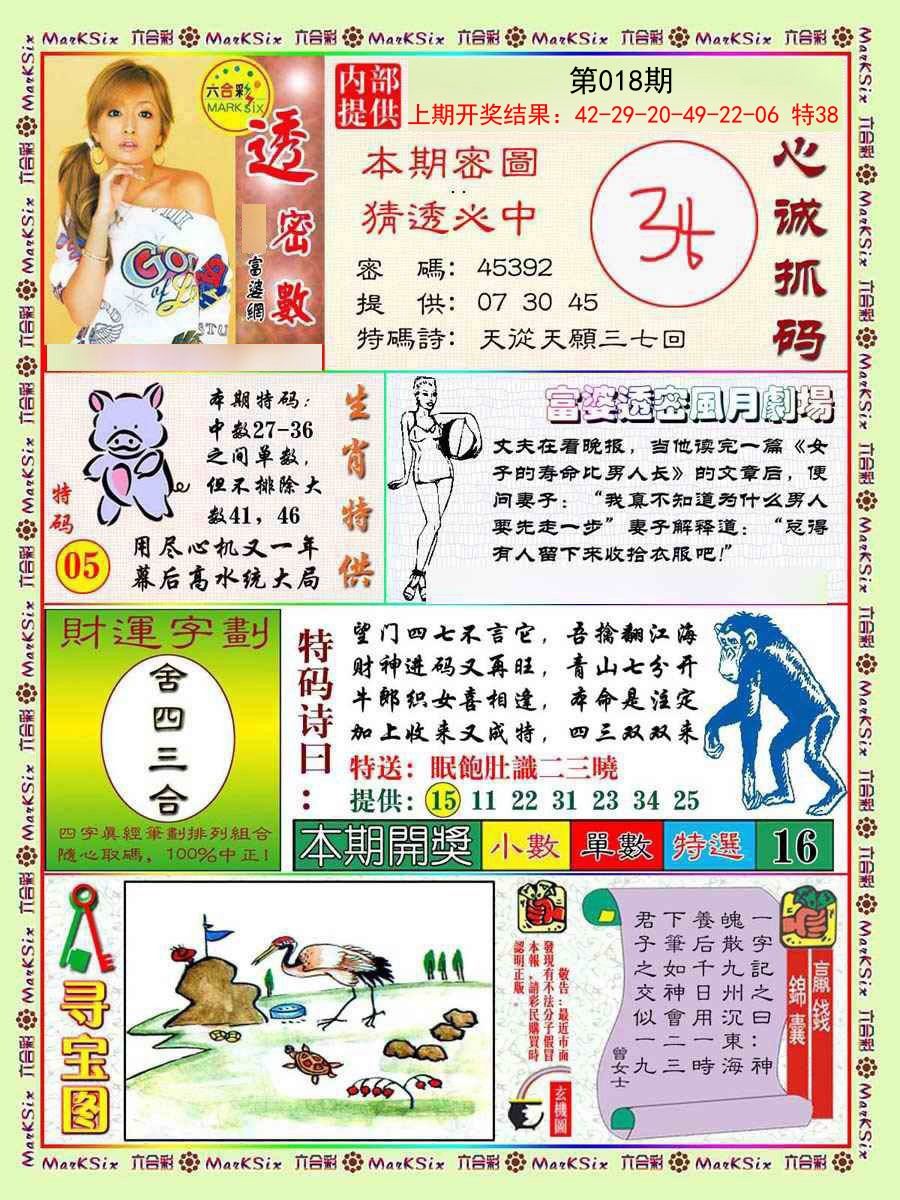 MarKSix 六合彩 MarKSix 六合彩 MarKSix 六合彩 MarKSix 六合彩 MarKSix 六合彩
六合彩
MARK SIX
透密數
富婆網
内部
提供
第018期
上期开奖结果：42-29-20-49-22-06 特38
本期密圖
猜透必中
密 碼：45392
提 供：07 30 45
特碼詩：天從天願三七回
心诚抓码
生肖特供
本期特码：
中数27-36
之间单数，
但不排除大
数41，46
特码
05
用尽心机又一年
幕后高水统大局
富婆透密風月劇場
丈夫在看晚报，当他读完一篇《女
子的寿命比男人长》的文章后，便
问妻子：“我真不知道为什么男人
要先走一步”妻子解释道：“总得
有人留下来收拾衣服吧!”
財運字劃
舍四三合
四字眞經筆劃排列組合
隨心取碼，100%中正!
特码诗曰：
望门四七不言它，吾擒翻江海
财神进码又再旺，青山七分开
牛郎织女喜相逢，本命是注定
加上收来又成特，四三双双来
特送：眠飽肚識二三曉
提供：15 11 22 31 23 34 25
本期開獎 小數 單數 特選 16
寻宝图
敬告：最近市面
發現有不法分子假冒
本報，請彩民購買時
認明正版。
玄機圖
贏錢
錦囊
一字記之曰：神
魄散九州沉東海
養后千日用一時
下筆如神會二三
君子之交似一九
曾女士
MarKSix 六合彩 MarKSix 六合彩 MarKSix 六合彩 MarKSix 六合彩 MarKSix 六合彩